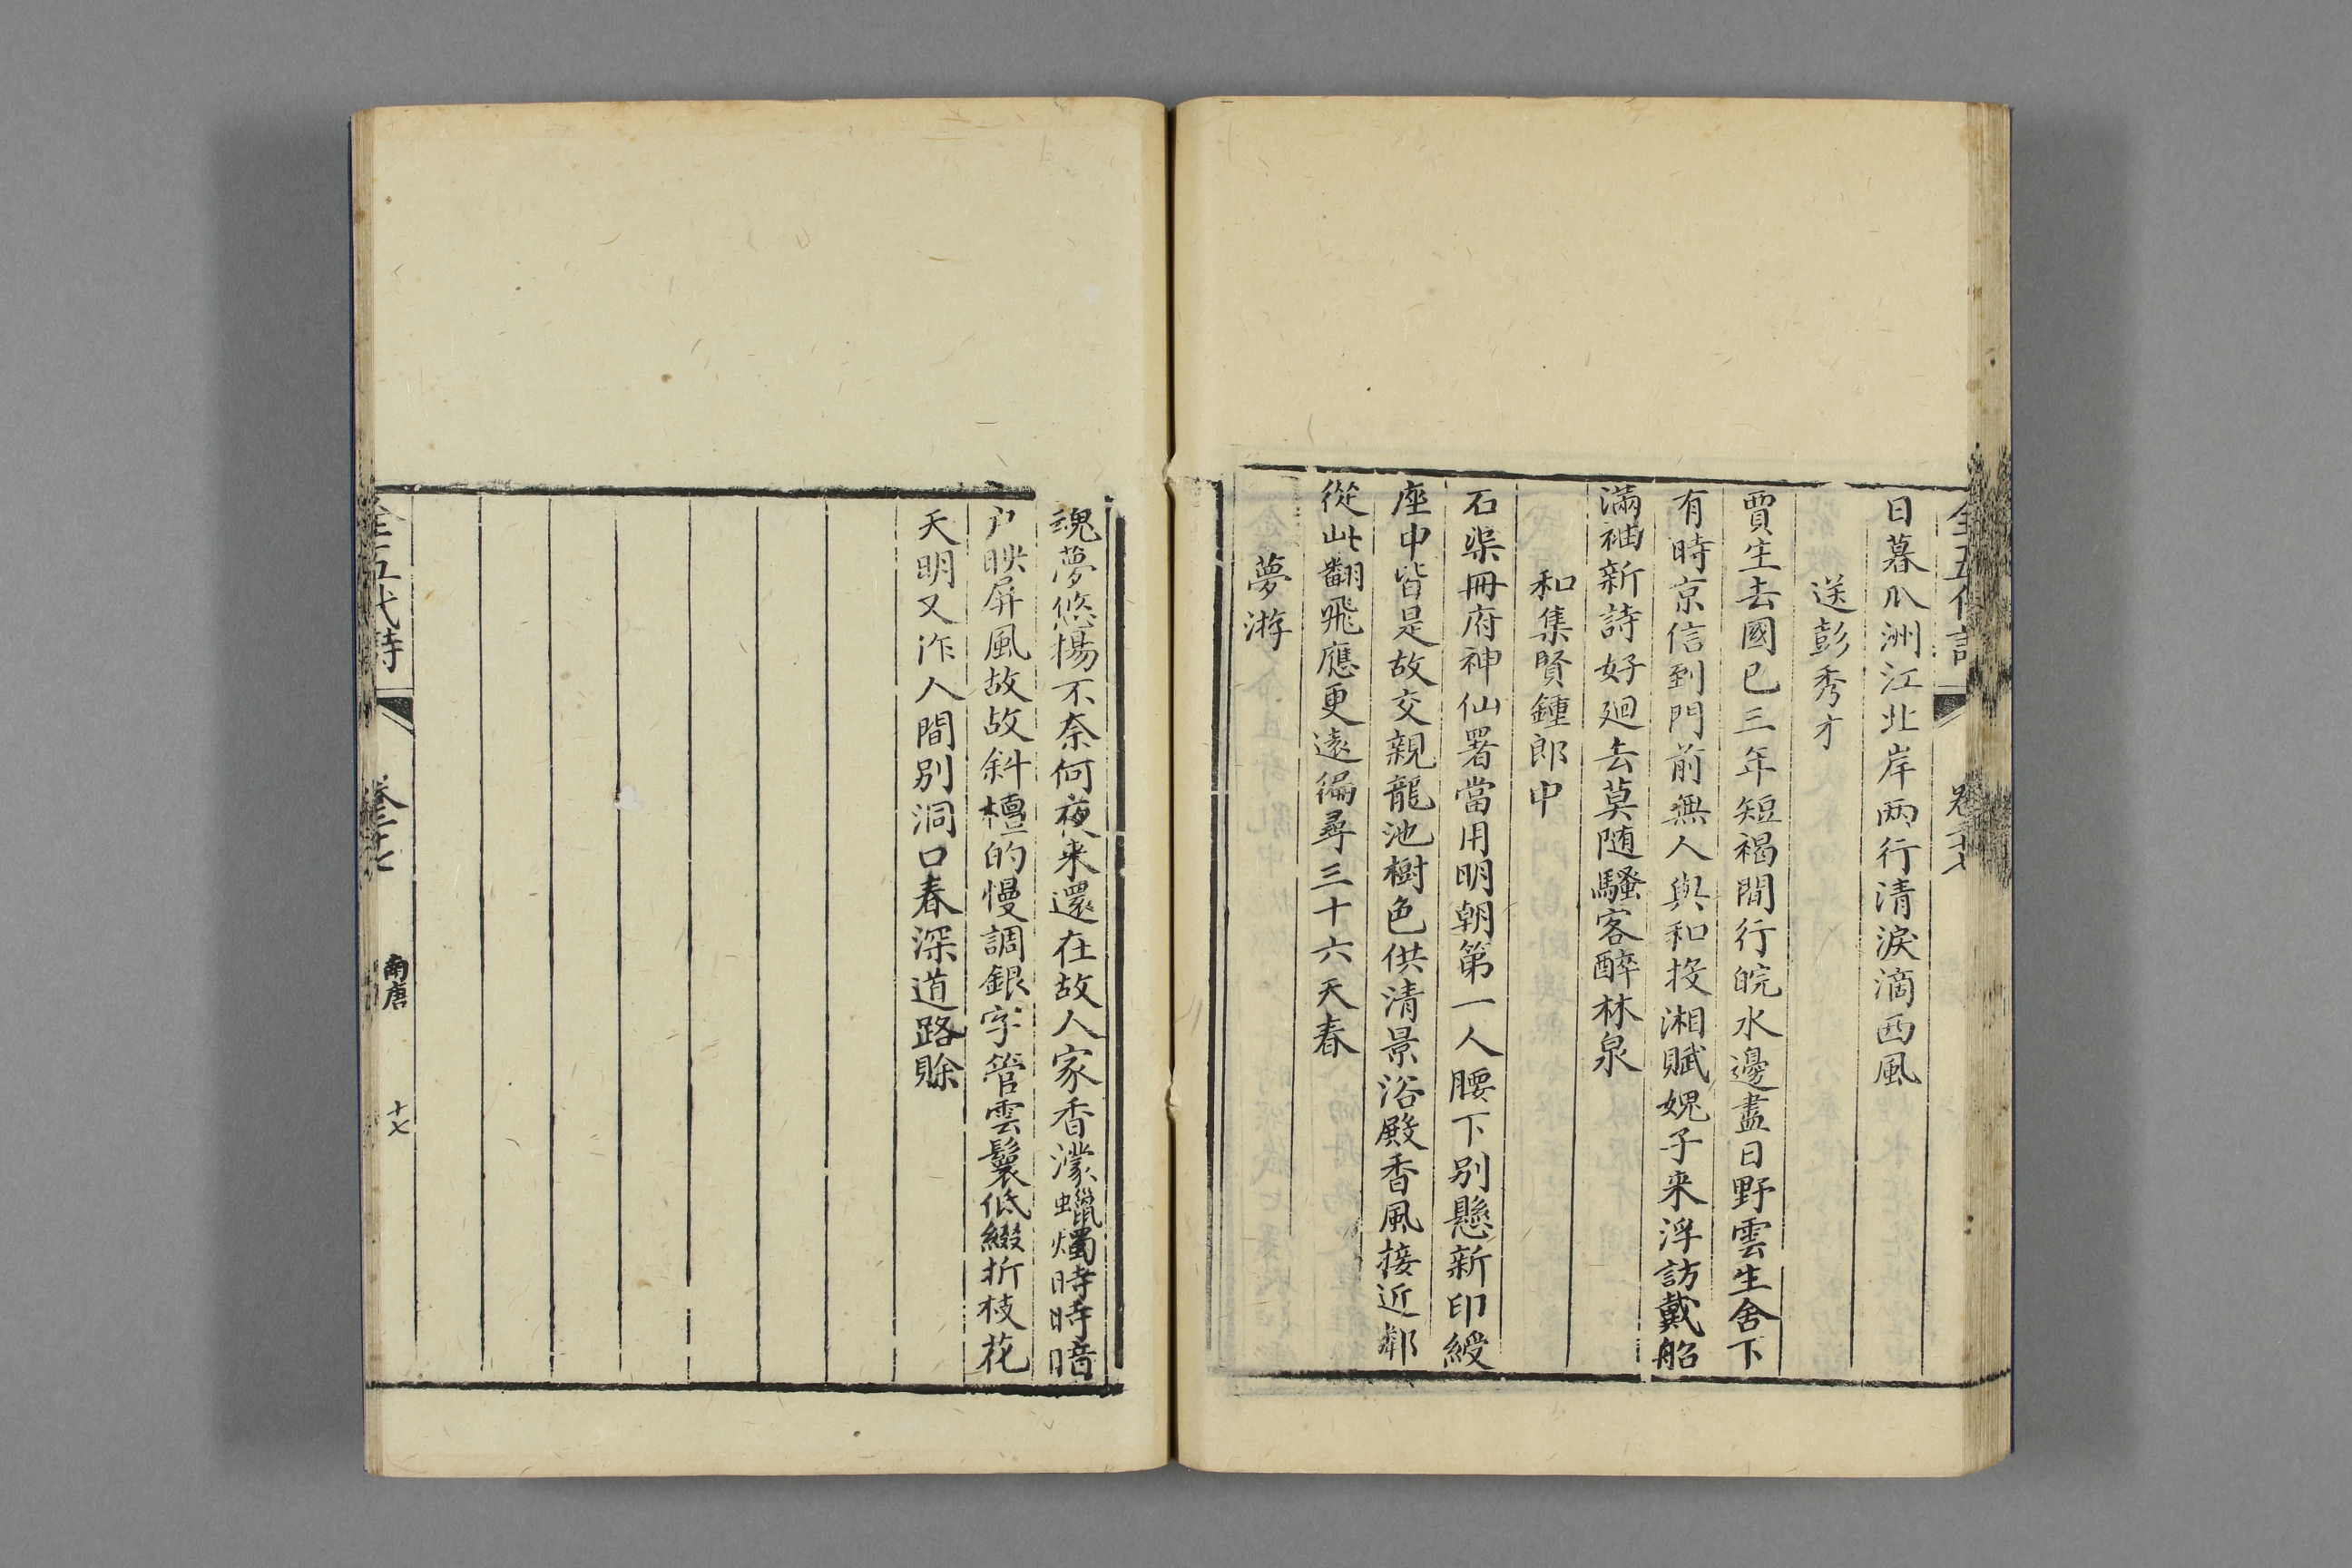 日暮瓜洲江北岸兩行清淚滴西風
送彭秀才
賈生去國已三年短褐間行皖水邊盡日野雲生舍下
有時京信到門前無人與和投湘賦媿子来浮訪戴船
滿袖新詩好廻去莫随騷客醉林泉
和集賢鍾郎中
石渠冊府神仙署當用明朝第一人腰下別懸新印綬
座中皆是故交親龍池樹色供清景浴殿香風接近鄰
從此翻飛應更遠徧尋三十六天春
夢游
魂夢悠揚不奈何夜来還在故人家香濛蠟燭時時暗
户映屏風故故斜檀的慢調銀字管雲鬟低綴折枝花
天明又作人間別洞口春深道路賒
全五代詩
卷三十七
南唐
十七